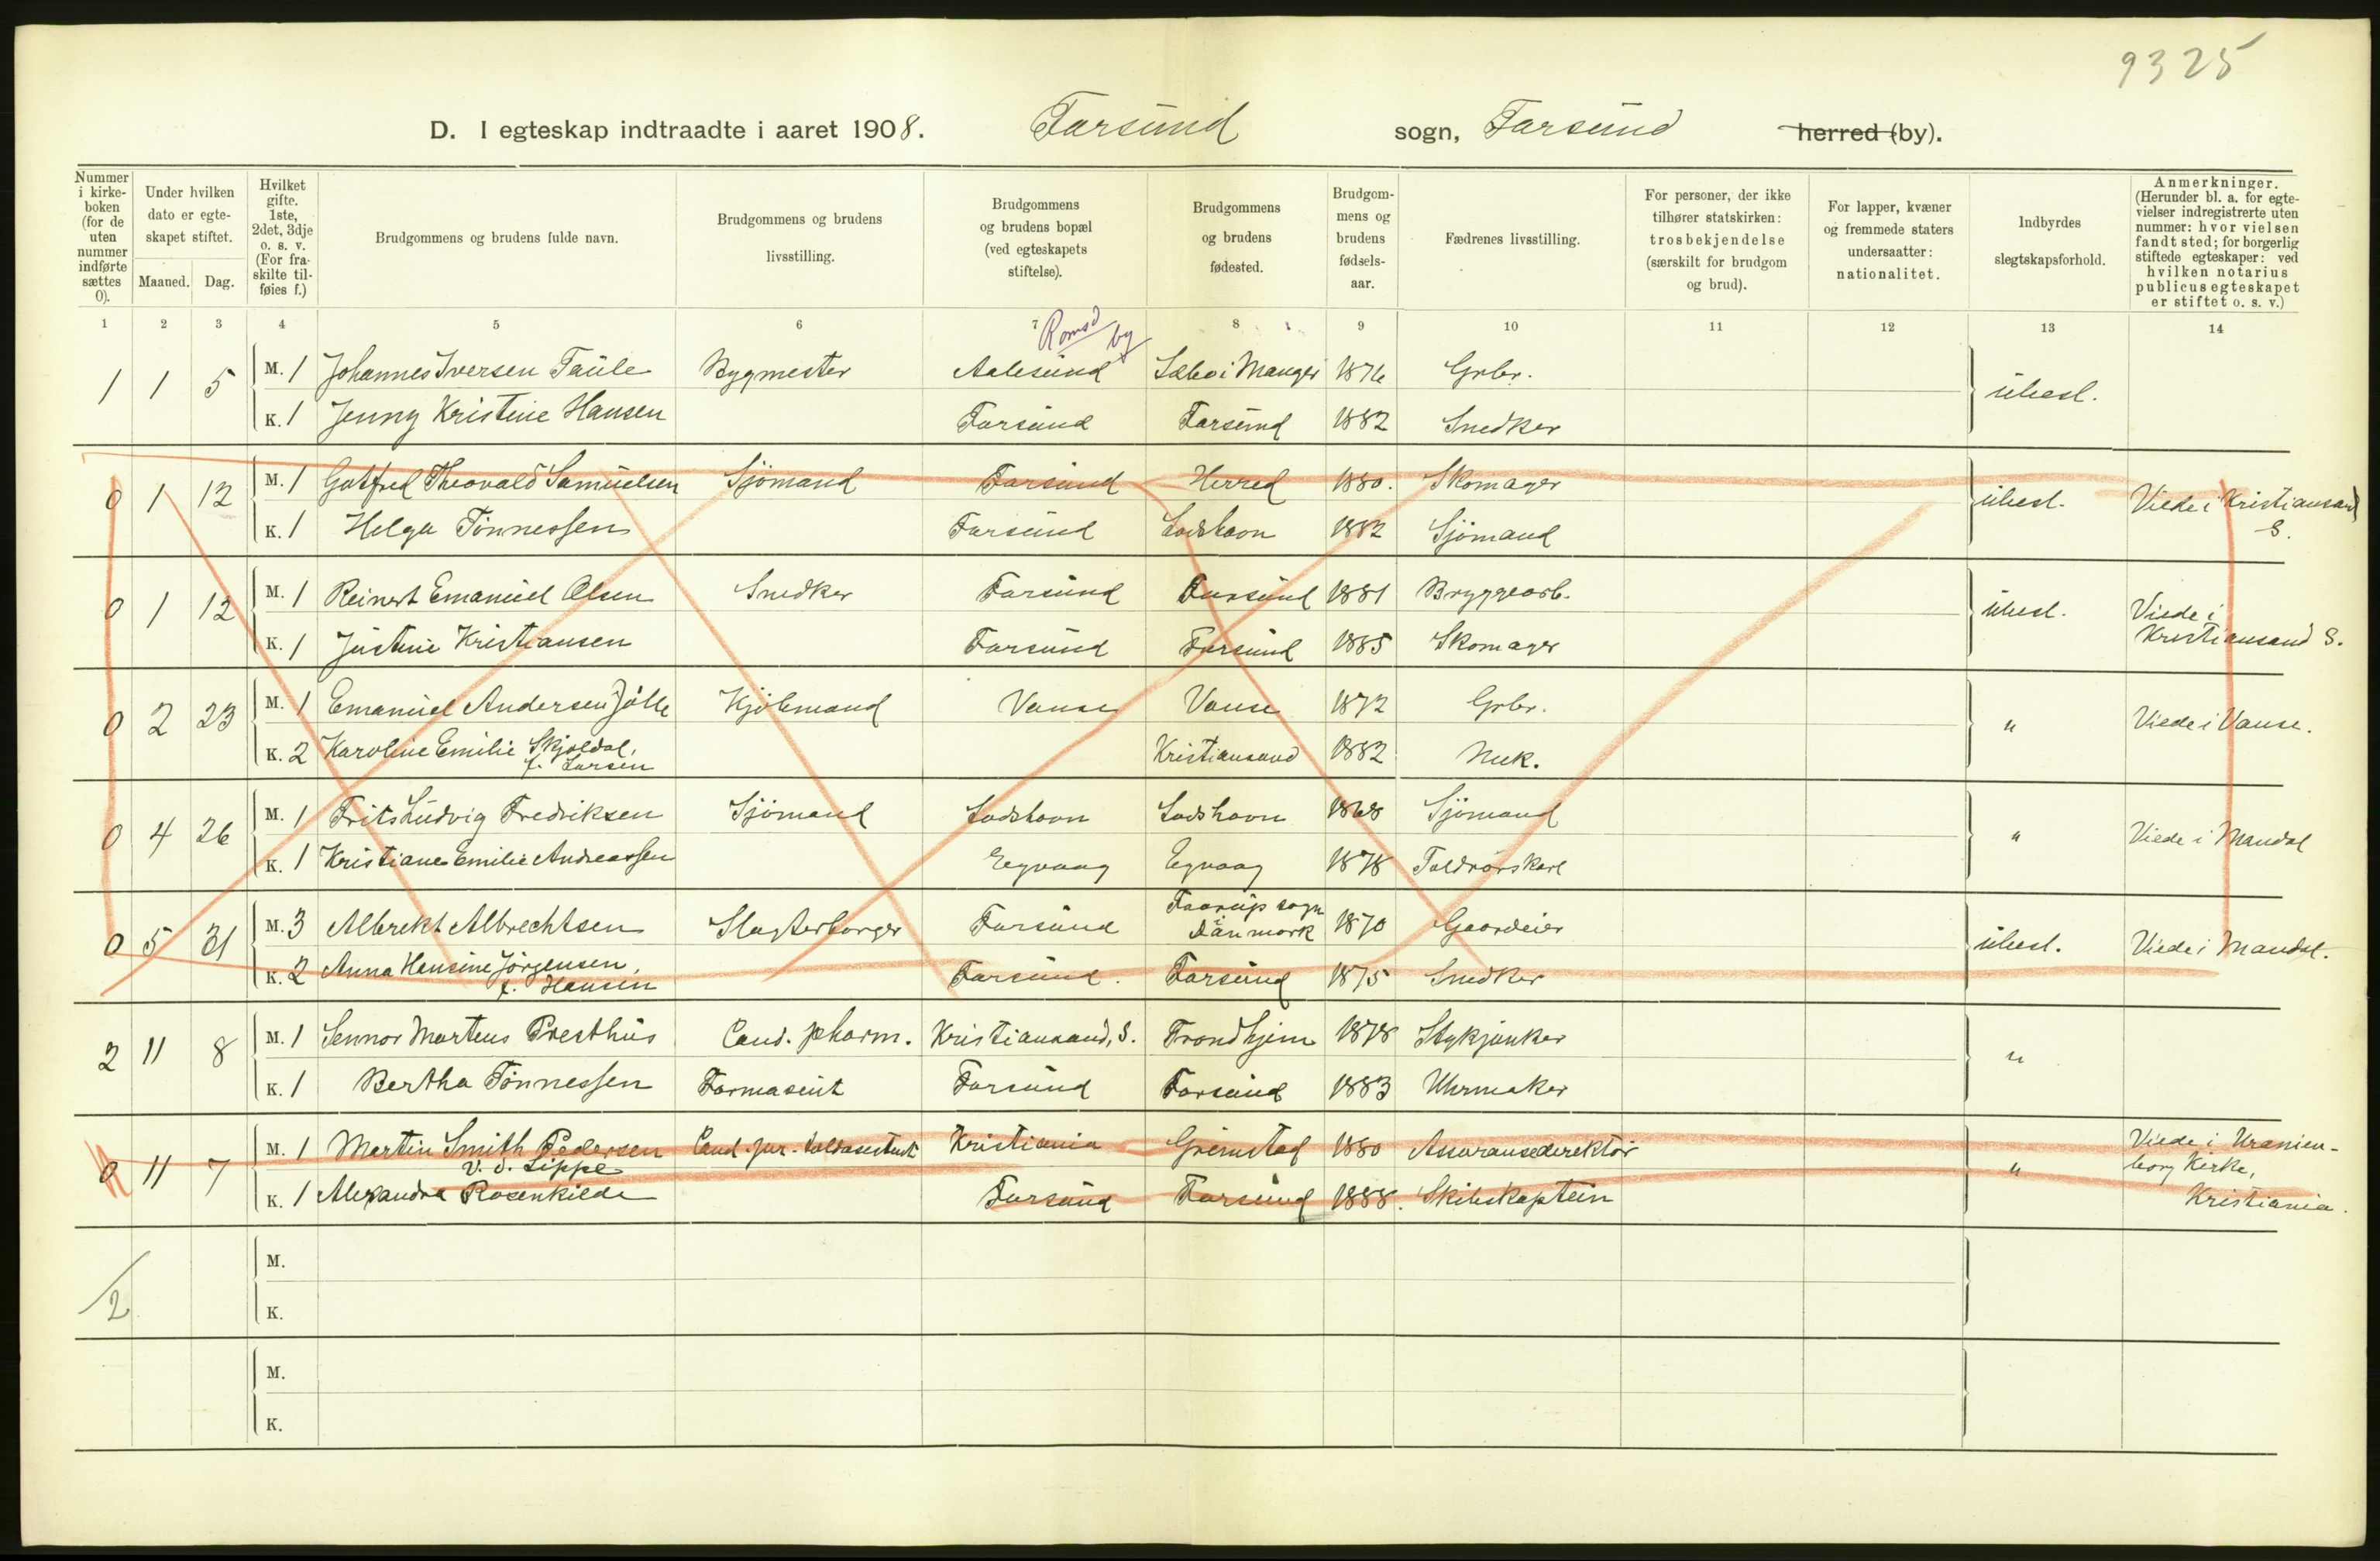 9325
D. I egteskap indtraadte i aaret 1908. Farsund sogn, Farsund herred (by).
Nummer i kirkeboken (for de uten nummer indførte sættes 0).
Under hvilken dato er egteskapet stiftet.
Maaned. Dag.
Hvilket gifte. 1ste, 2det, 3dje o. s. v. (For fraskilte tilføies f.)
Brudgommens og brudens fulde navn.
Brudgommens og brudens livsstilling.
Brudgommens og brudens bopæl (ved egteskapets stiftelse).
Brudgommens og brudens fødested.
Brudgommens og brudens fødselsaar.
Fædrenes livsstilling.
For personer, der ikke tilhører statskirken: trosbekjendelse (særskilt for brudgom og brud).
For lapper, kvæner og fremmede staters undersaatter: nationalitet.
Indbyrdes slegtskapsforhold.
Anmerkninger. (Herunder bl. a. for egtevielser indregistrerte uten nummer: hvor vielsen fandt sted; for borgerlig stiftede egteskaper: ved hvilken notarius publicus egteskapet er stiftet o. s. v.)
1 2 3 4 5 6 7 8 9 10 11 12 13 14
Romsd by
1 1 5 M. 1 Johannes Iversen Taule Bygmester Aalesund Sæbø i Manger 1876 Grbr. ubesl.
K. 1 Jenny Kristine Hansen Farsund Farsund 1882 Snedker
0 1 12 M. 1 Gotfred Theovald Samuelsen Sjömand Farsund Herred 1880. Skomager ubesl. Viede i Kristiansand S.
K. 1 Helga Tönnessen Farsund Lodshavn 1882 Sjömand
0 1 12 M. 1 Reinert Emanuel Olsen Snedker Farsund Farsund 1881 Bryggearb. ubesl. Viede i Kristiansand S.
K. 1 Justine Kristiansen Farsund Farsund 1885 Skomager
0 2 23 M. 1 Emanuel Andersen Jölle Kjöbmand Vanse Vanse 1872 Grbr. " Viede i Vanse.
K. 2 Karoline Emilie Skjoldal, f. Larsen Kristiansand 1882 Muk.
0 4 26 M. 1 Frits Ludvig Fredriksen Sjömand Lodshavn Lodshavn 1868 Sjömand " Viede i Mandal
K. 1 Kristiane Emilie Andreassen Eegvaag Egvaag 1878 Toldrorskarl
0 5 31 M. 3 Albrekt Albrechtsen Slagterborger Farsund Faarup sogn i Danmark 1870 Gaardeier ubesl. Viede i Mandal.
K. 2 Anna Hansine Jörgensen, f. Hansen Farsund. Farsund 1875 Snedker
2 11 8 M. 1 Sennor Martens Presthus Cand. pharm. Kristiansand, S. Trondhjem 1878 Stykjunker "
K. 1 Bertha Tönnessen Farmaseut Farsund Farsund 1883 Uhrmaker
0 11 7 M. 1 Martin Smith Pedersen Cand. jur. Toldassistent Kristiania Grimstad 1880 Assuransedirektör " Viede i Uranienborg Kirke, Kristiania.
K. 1 Alexandra v. d. Lippe Rosenkilde Farsund Farsund 1888. Skibskaptein
/2 M.
K.
M.
K.